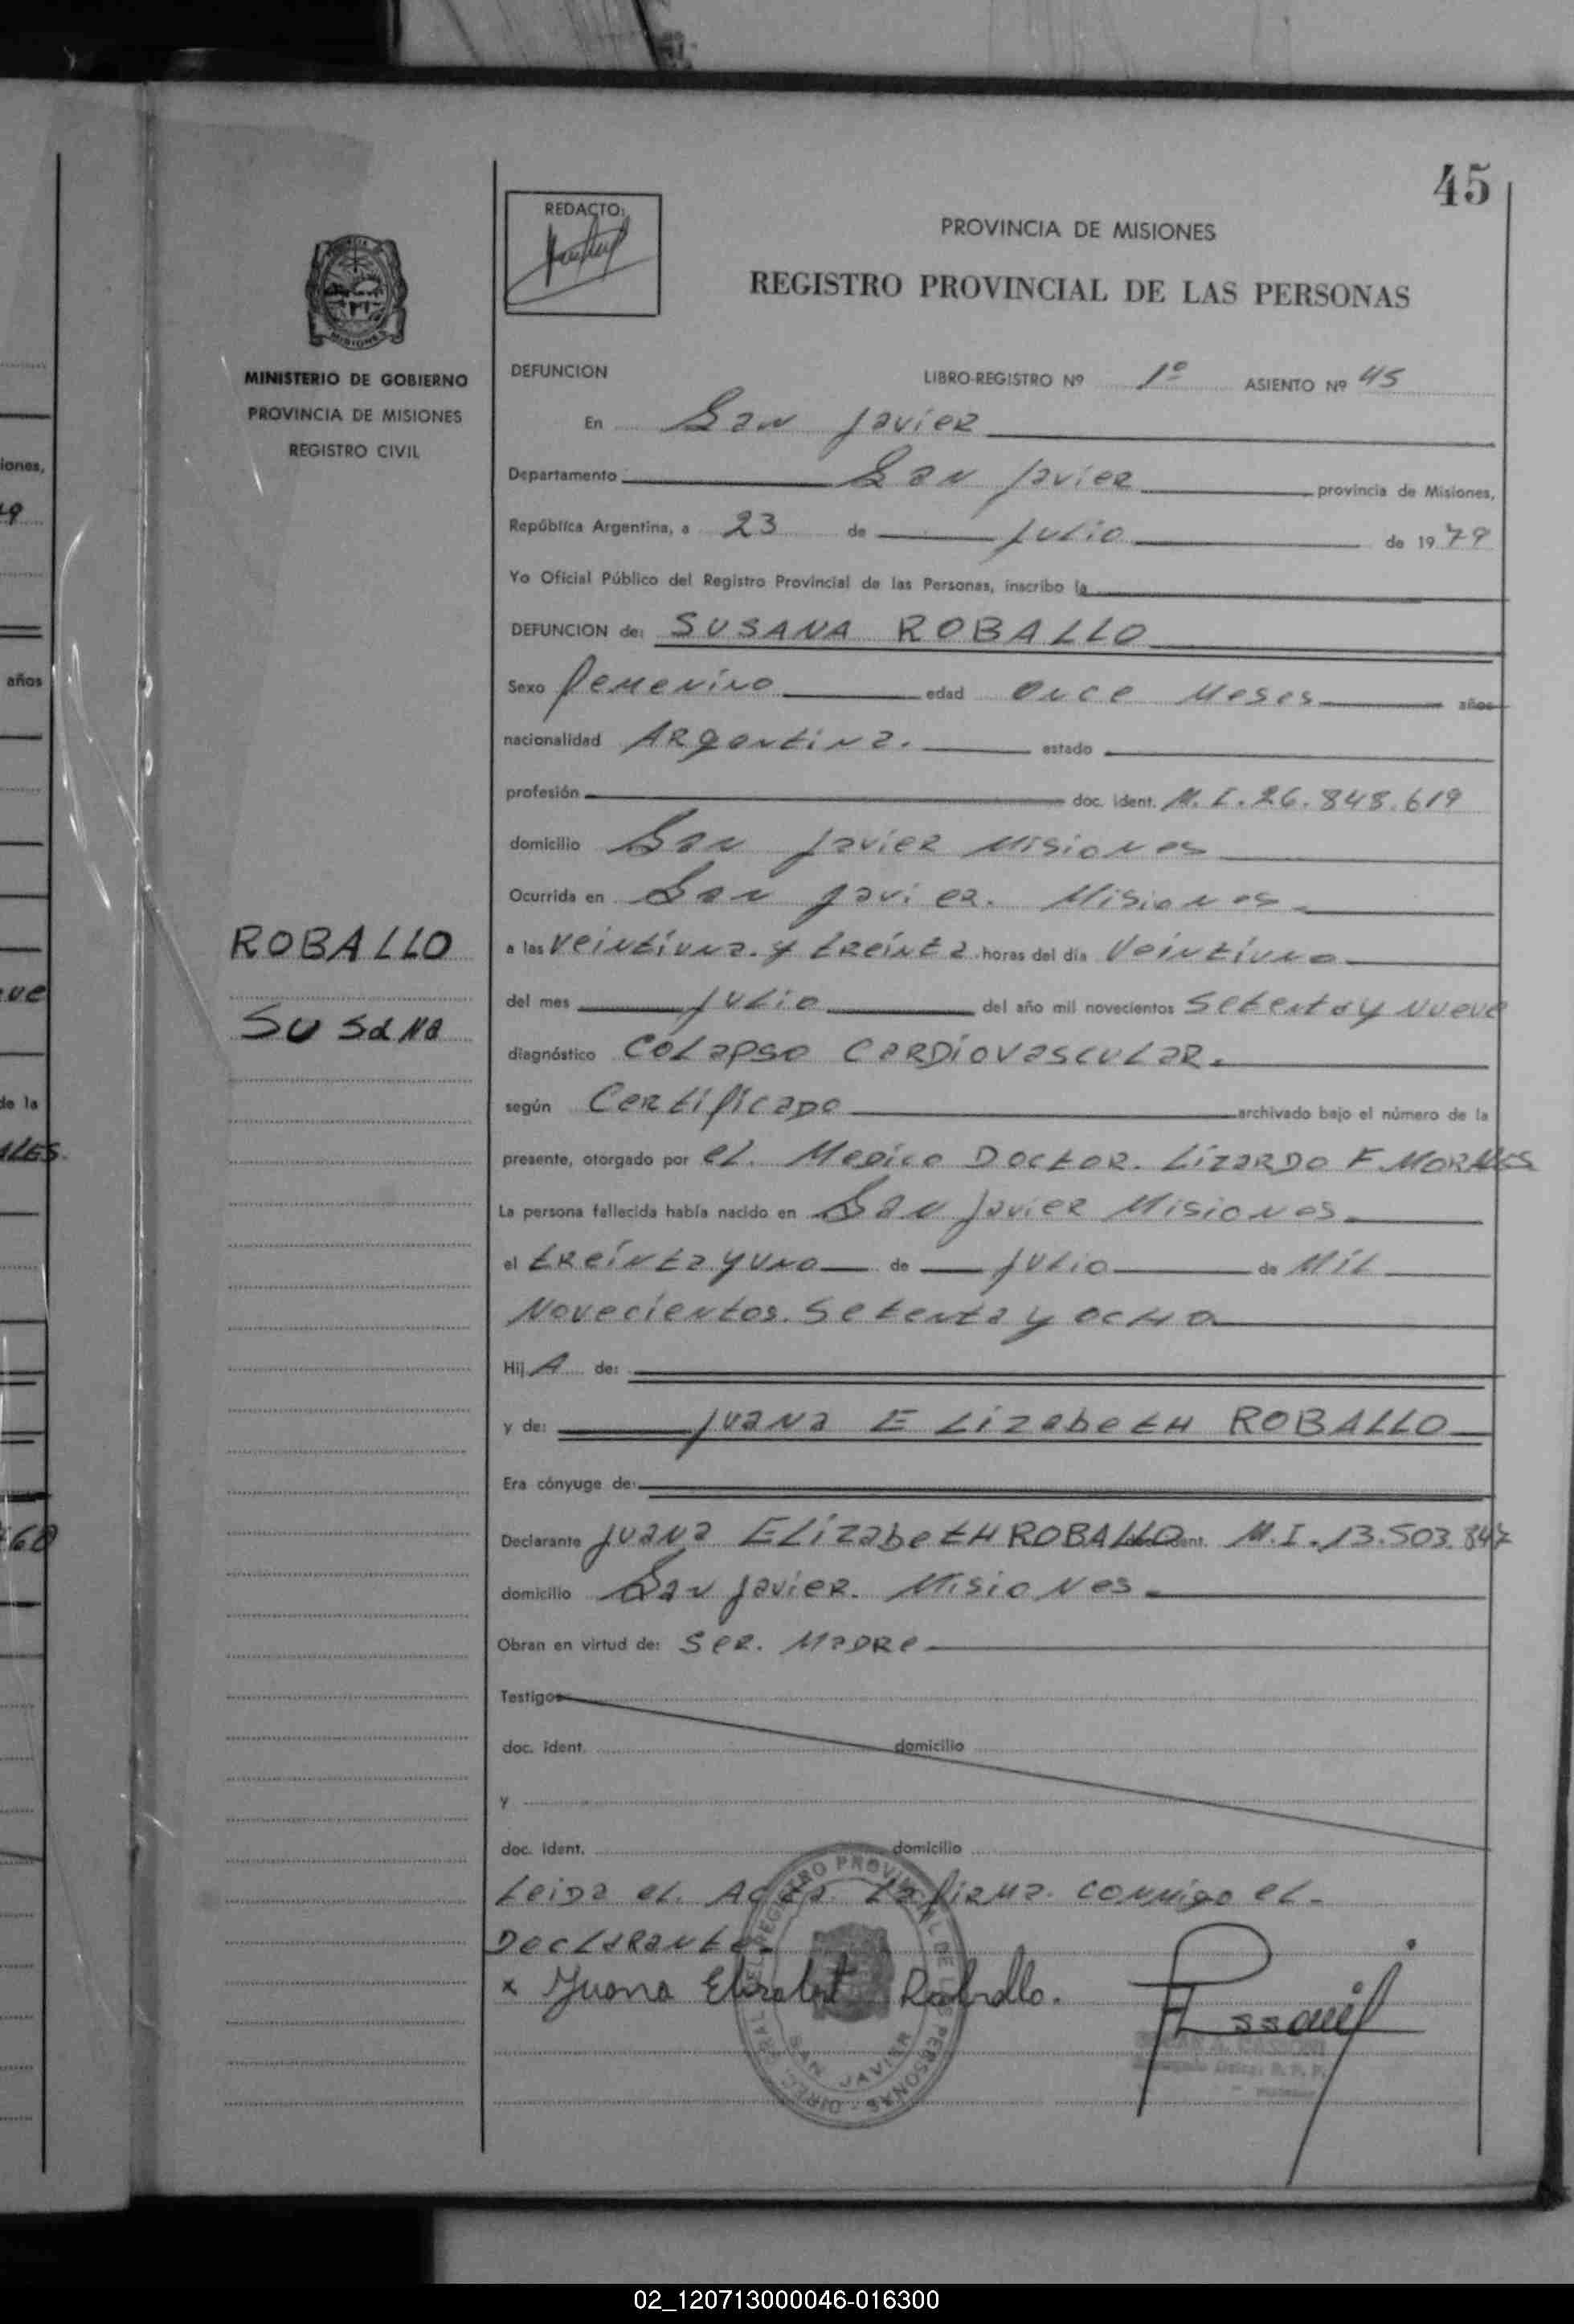 45
REDACTO:
PROVINCIA DE MISIONES
REGISTRO PROVINCIAL DE LAS PERSONAS
MISIONES
MINISTERIO DE GOBIERNO
PROVINCIA DE MISIONES
REGISTRO CIVIL
DEFUNCION LIBRO-REGISTRO Nº 1º ASIENTO Nº 45
En San Javier
Departamento San Javier provincia de Misiones,
República Argentina, a 23 de Julio de 1979
Yo Oficial Público del Registro Provincial de las Personas, inscribo la
DEFUNCION de: SUSANA ROBALLO
Sexo femenino edad once meses años
nacionalidad Argentina. estado
profesión doc. ident. M.I. 26.848.619
domicilio San Javier Misiones
Ocurrida en San Javier. Misiones
ROBALLO
Susana
a las veintiuna. y treinta horas del día Veintiuno
del mes Julio del año mil novecientos Setenta y nueve
diagnóstico Colapso Cardiovascular.
según Certificado archivado bajo el número de la
presente, otorgado por el. Medico Doctor. Lizardo F. Morales
La persona fallecida había nacido en San Javier Misiones
el treinta y uno de Julio de Mil
Novecientos. Setenta y ocho
Hij A de:
y de: Juana Elizabeth ROBALLO
Era cónyuge de:
Declarante Juana Elizabeth ROBALLO ent. M.I. 13.503.847
domicilio San Javier. Misiones
Obran en virtud de: Ser. Madre
Testigos
doc. ident. domicilio
y
doc. ident. domicilio
Leida el. Acta. La firma. conmigo el
Declarante
x Juana Elizabet Roballo.
DIREC. GRAL. DEL REGISTRO PROVINCIAL DE LAS PERSONAS
SAN JAVIER
iones,
años
de la
02_120713000046-016300